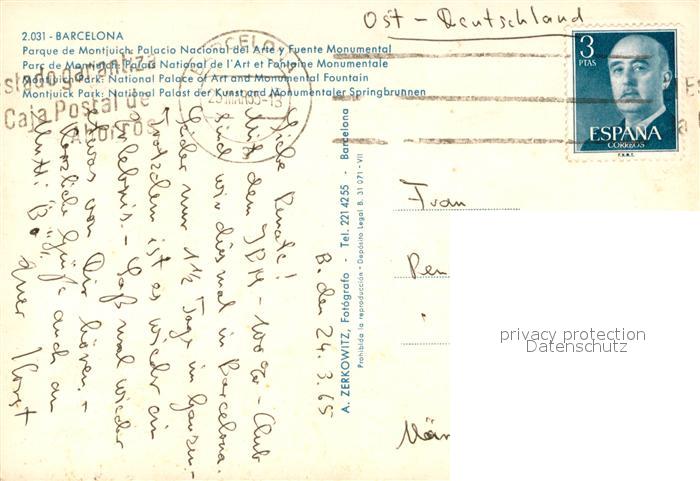 Ost - Deutschland
2.031 - BARCELONA
Parque de Montjuich: Palacio Nacional del Arte y Fuente Monumental
Parc de Montjuich: Palais National de l'Art et Fontaine Monumentale
Montjuich Park: National Palace of Art and Monumental Fountain
Montjuick Park: National Palast der Kunst und Monumentaler Springbrunnen
Caja Postal de
Ahorros
BARCELONA
3
PTAS
ESPAÑA
CORREOS
F.N.M.T.
B. den 24.3.65
Liebe Renate!
Mit dem IBM - 100% - Club
sind wir diesmal in Barcelona.
Leider nur 1½ Tage im ganzen -
Trotzdem ist es wieder ein
Erlebnis. - Laß mal wieder
etwas von Dir hören. +
Herzliche Grüße auch an
Mutti B.
Euer Horst
A. ZERKOWITZ, Fotógrafo - Tel. 221 42 55 - Barcelona
Prohibida la reproducción - Depósito Legal B. 31 071 - VII
Frau
Ren
Mär
privacy protection
Datenschutz